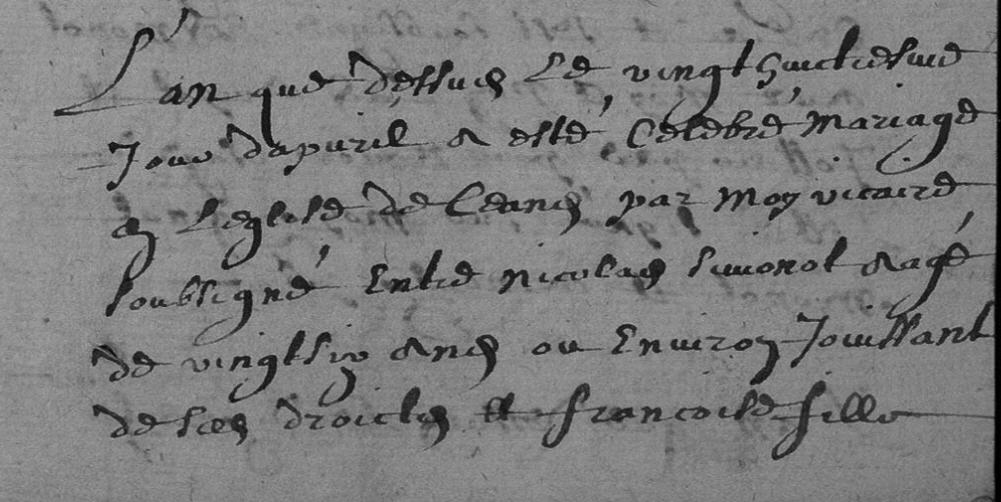 L'an que dessus Le vingt huictiesme
Jour dapuril a esté Célébré mariage
en Leglise de Ceans par moy vicaire
soubsigné Entre nicolas simonot aagé
de vingt six ans ou Enuiron Jouissant
de ses droictz et francoise fille